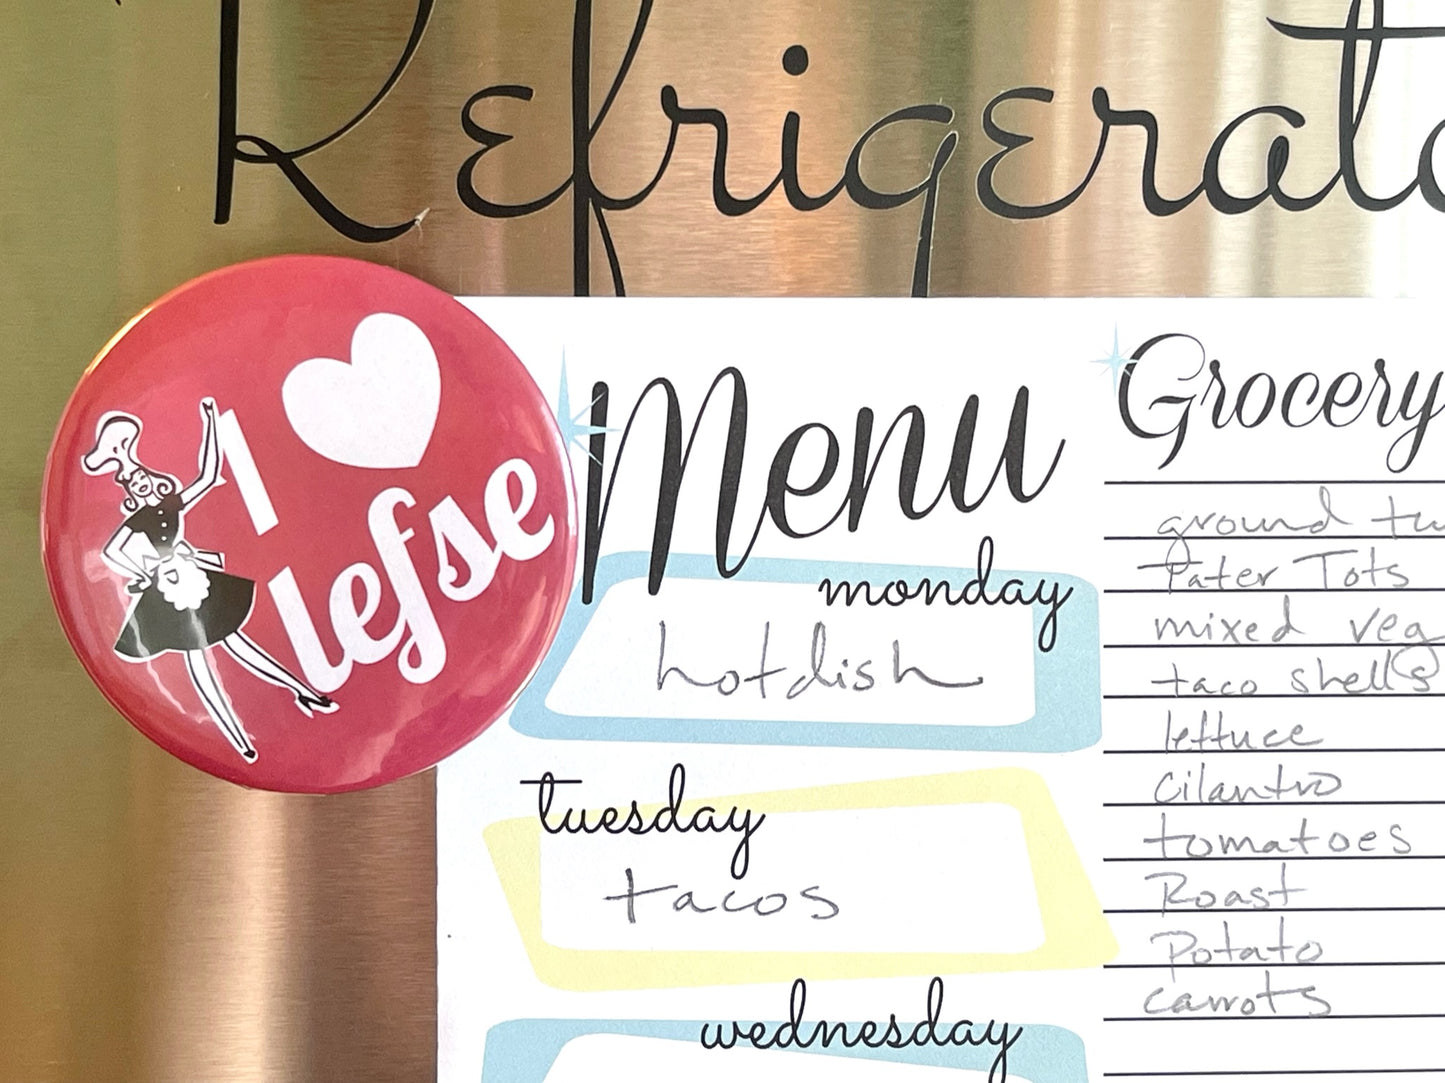 Refrigerato
I
lefse
Menu
monday
hotdish
tuesday
tacos
wednesday
Grocery
ground tu
Tater Tots
mixed veg
taco shells
lettuce
cilantro
tomatoes
Roast
Potato
carrots